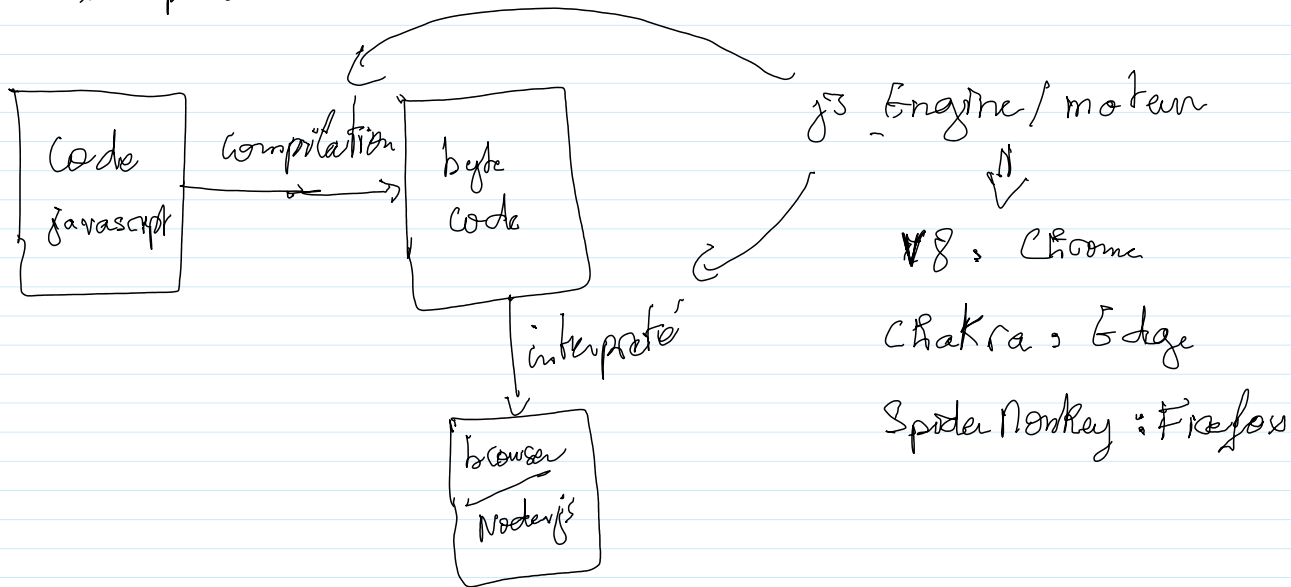 Code
javascript
compilation
byte
code
interprété
browser
Nodejs
js Engine / moteur
V8 : Chrome
Chakra : Edge
SpiderMonkey : Firefox